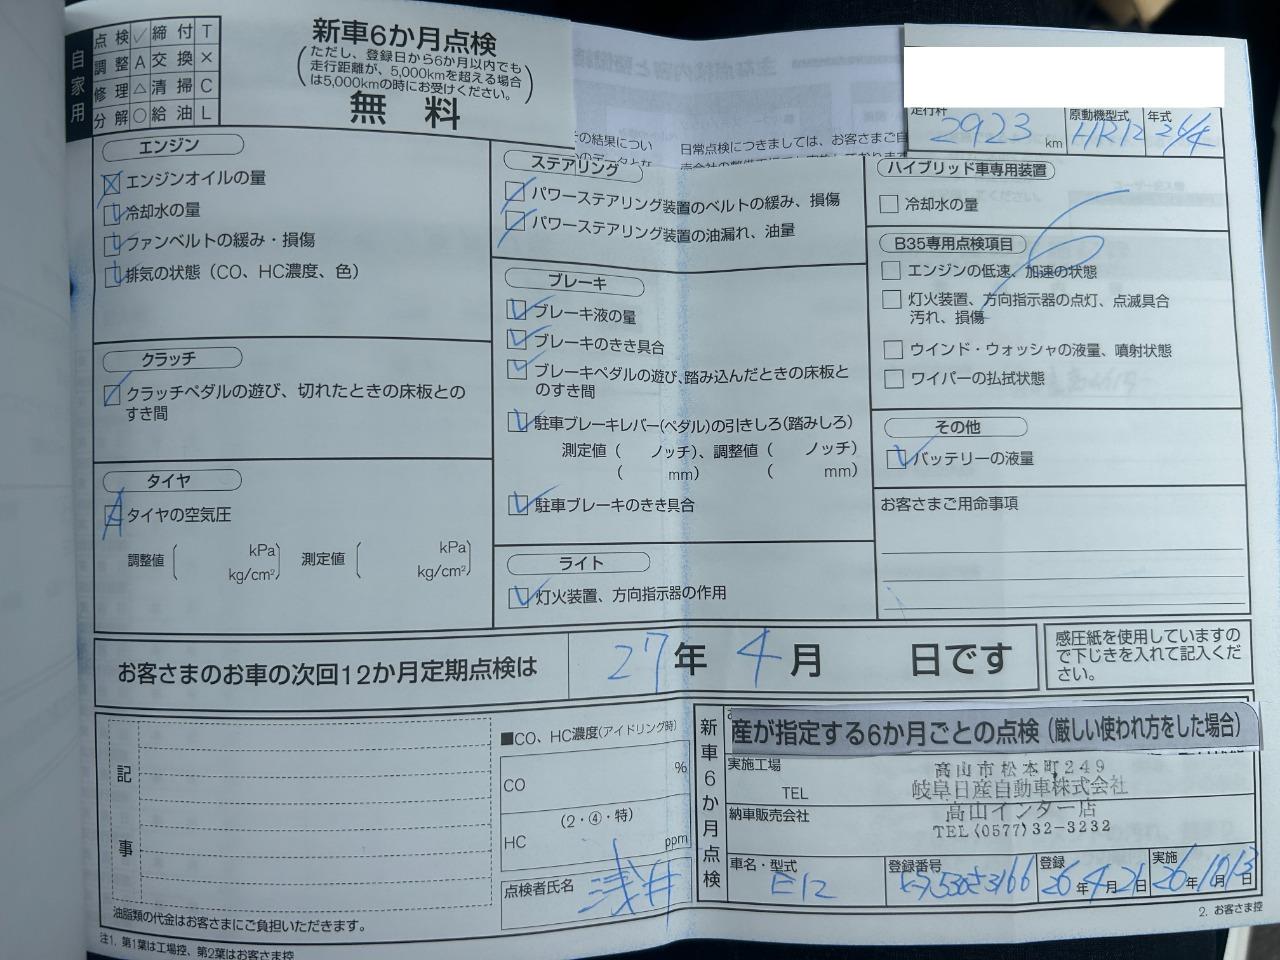 自家用
点検 ✓ 締付 T
調整 A 交換 ×
修理 △ 清掃 C
分解 ○ 給油 L
新車6か月点検
(ただし、登録日から6か月以内でも
走行距離が、5,000kmを超える場合
は5,000kmの時にお受けください。)
無料
その結果につい
日常点検につきましては、お客さまご自
走行粁
2923 km
原動機型式
HR12
年式
26/4
エンジン
エンジンオイルの量
冷却水の量
ファンベルトの緩み・損傷
排気の状態(CO、HC濃度、色)
クラッチ
クラッチペダルの遊び、切れたときの床板との
すき間
タイヤ
タイヤの空気圧
調整値( kPa kg/cm²) 測定値( kPa kg/cm²)
ステアリング
パワーステアリング装置のベルトの緩み、損傷
パワーステアリング装置の油漏れ、油量
ブレーキ
ブレーキ液の量
ブレーキのきき具合
ブレーキペダルの遊び、踏み込んだときの床板と
のすき間
駐車ブレーキレバー(ペダル)の引きしろ(踏みしろ)
測定値( ノッチ)、調整値( ノッチ)
( mm) ( mm)
駐車ブレーキのきき具合
ライト
灯火装置、方向指示器の作用
ハイブリッド車専用装置
冷却水の量
B35専用点検項目
エンジンの低速、加速の状態
灯火装置、方向指示器の点灯、点滅具合
汚れ、損傷
ウインド・ウォッシャの液量、噴射状態
ワイパーの払拭状態
その他
バッテリーの液量
お客さまご用命事項
お客さまのお車の次回12か月定期点検は 27年 4月 日です
感圧紙を使用していますの
で下じきを入れて記入くだ
さい。
記事
油脂類の代金はお客さまにご負担いただきます。
■CO、HC濃度(アイドリング時)
CO %
(2・④・特)
HC ppm
点検者氏名 浅井
新車6か月点検
産が指定する6か月ごとの点検(厳しい使われ方をした場合)
実施工場
TEL
納車販売会社
高山市松本町249
岐阜日産自動車株式会社
高山インター店
TEL(0577)32-3232
車名・型式
E12
登録番号
登録
26年4月21日
実施
26年10月13日
2. お客さま控
注1. 第1葉は工場控、第2葉はお客さま控